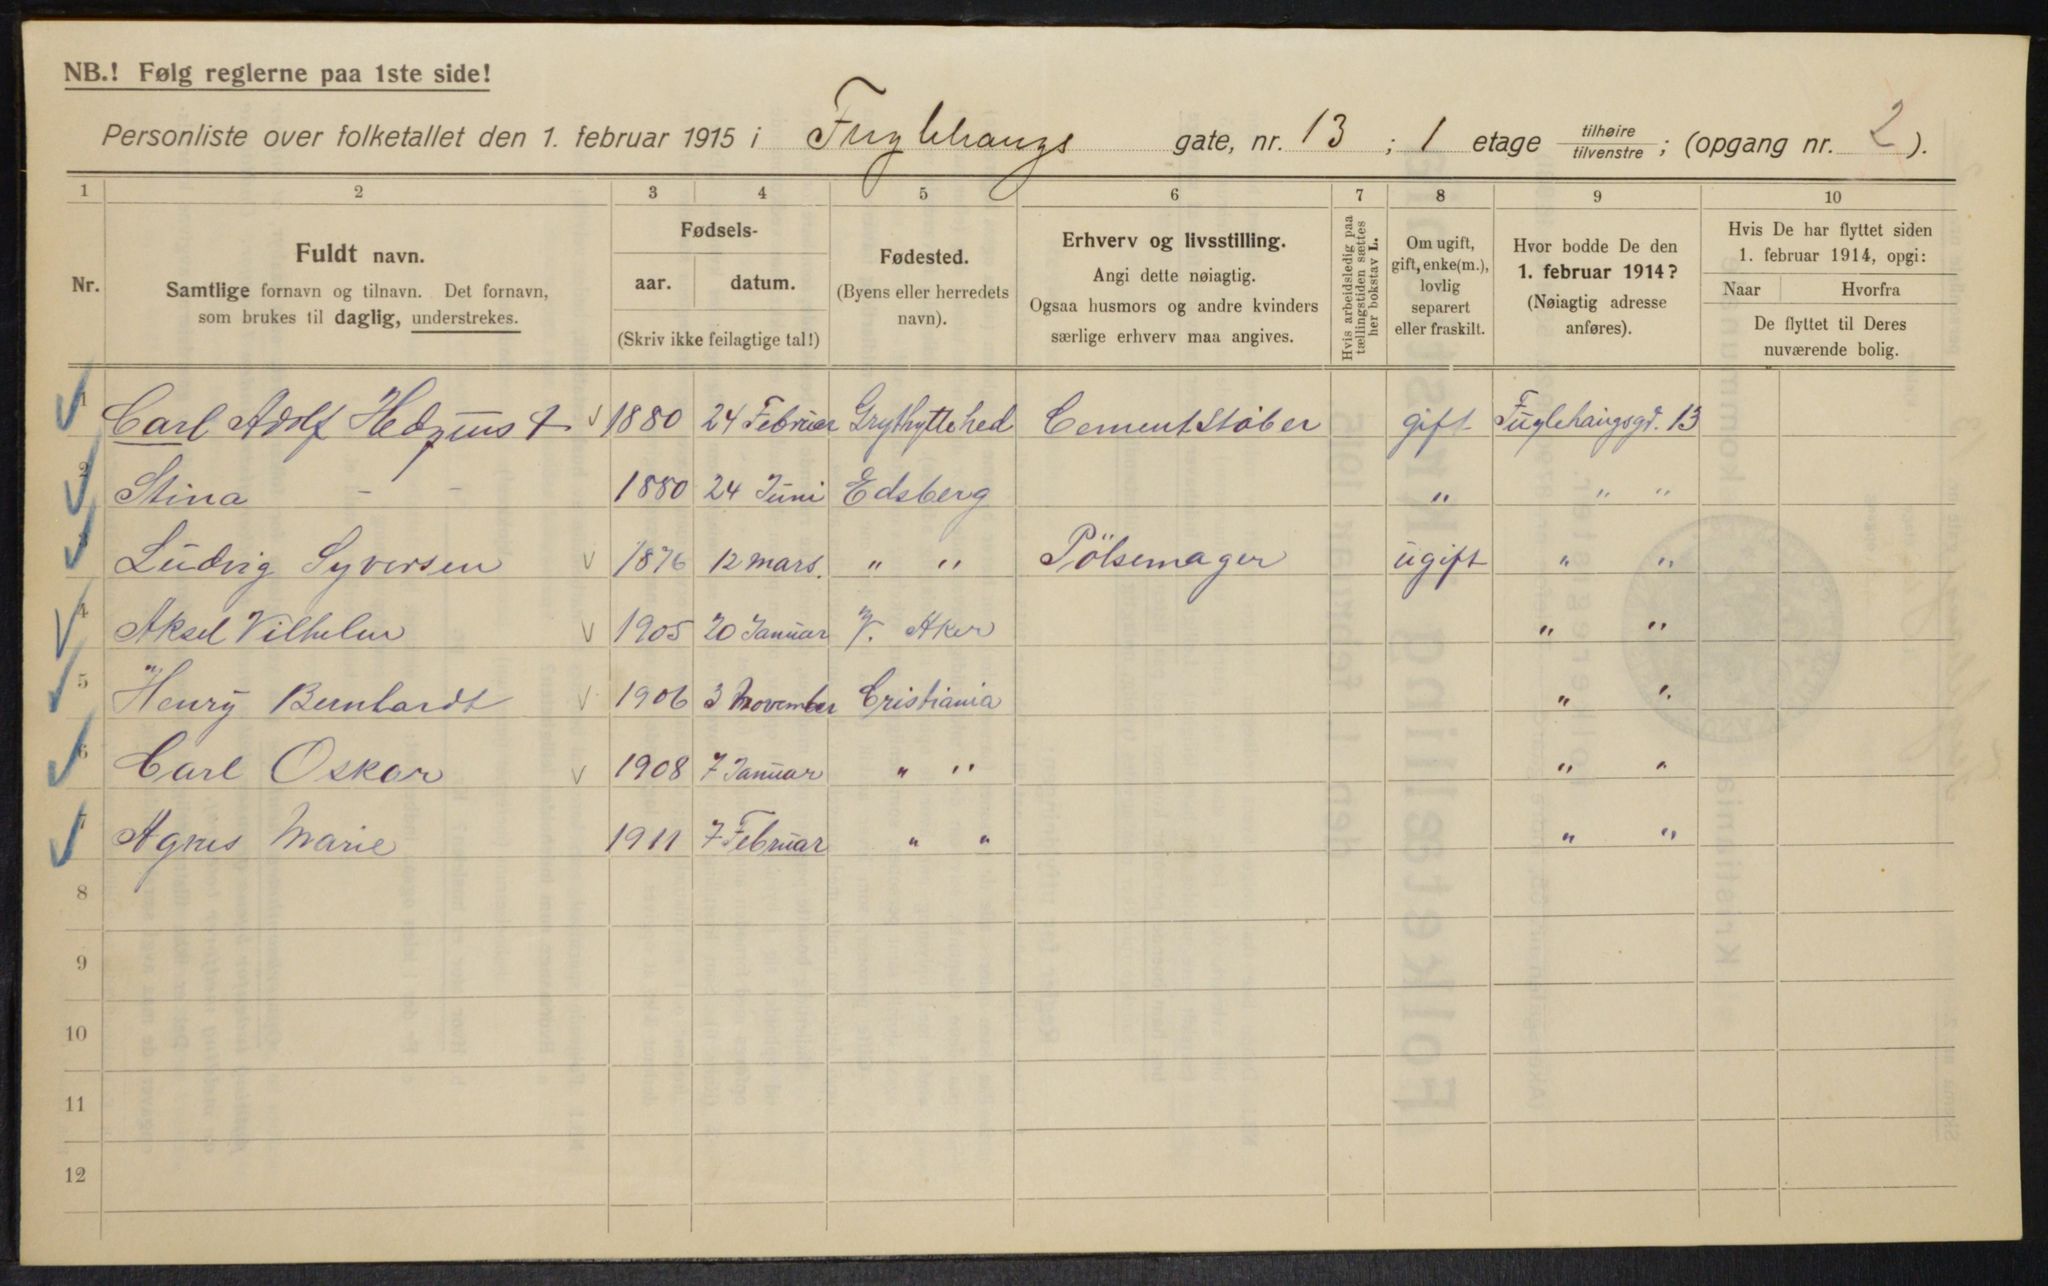 NB.! Følg reglerne paa 1ste side!
Personliste over folketallet den 1. februar 1915 i Fuglehaugs gate, nr. 13 ; 1 etage tilhøire tilvenstre ; (opgang nr. 2 ).
1 2 3 4 5 6 7 8 9 10
Nr.
Fuldt navn.
Samtlige fornavn og tilnavn. Det fornavn,
som brukes til daglig, understrekes.
Fødsels-
aar. datum.
(Skriv ikke feilagtige tal!)
Fødested.
(Byens eller herredets
navn).
Erhverv og livsstilling.
Angi dette nøiagtig.
Ogsaa husmors og andre kvinders
særlige erhverv maa angives.
Hvis arbeidsledig paa
tællingstiden sættes
her bokstav L.
Om ugift,
gift, enke(m.),
lovlig
separert
eller fraskilt.
Hvor bodde De den
1. februar 1914?
(Nøiagtig adresse
anføres).
Hvis De har flyttet siden
1. februar 1914, opgi:
Naar Hvorfra
De flyttet til Deres
nuværende bolig.
1 Carl Adolf 1880 24 Februar Grythyttehed Cementstøber gift Fuglehaugsgd. 13
2 Stina – – 1880 24 Juni Edsberg " " "
3 Ludvig Syversen 1876 12 mars. " " Pölsemager ugift " "
4 Aksel Vilhelm 1905 20 Januar V. Aker " "
5 Henry Bernhardt 1906 3 November Cristiania " "
6 Carl Oskar 1908 7 Januar " " " "
7 Agnes Marie 1911 7 Februar " " " "
8
9
10
11
12